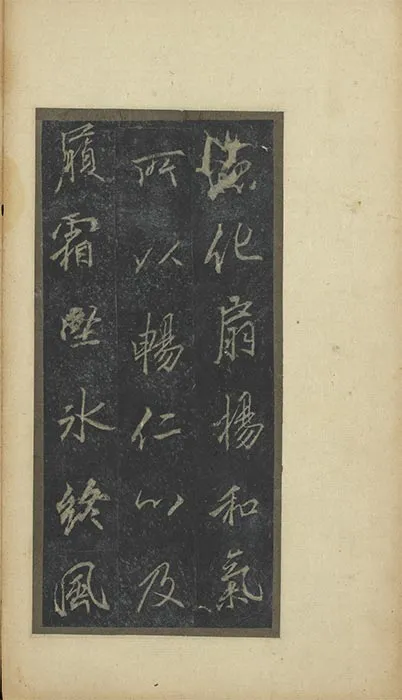 化扇揚和氣
所以暢仁心及
履霜堅冰終風